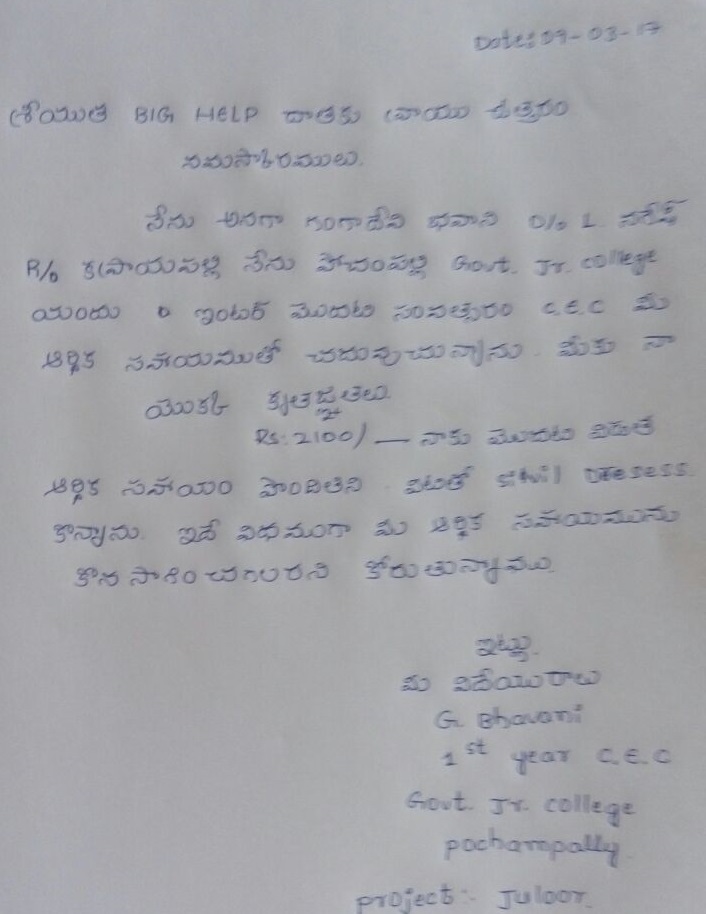 Date: 09-03-17
శ్రీయుత BIG HELP దాతకు వ్రాయు ఉత్తరం
నమస్కారములు.
నేను అనగా గంగాదేవి భవాని D/o L. నరేష్
R/o నేను పోచంపల్లి Govt. Jr. college
యందు ఇంటర్ మొదటి సంవత్సరం C.E.C మీ
ఆర్థిక సహాయముతో చదువుచున్నాను. మీకు నా
యొక్క కృతజ్ఞతలు.
Rs: 2100/- నాకు మొదటి విడత
ఆర్థిక సహాయం పొందితిని. వీటితో sitvil Dresess
కొన్నాను. ఇదే విధముగా మీ ఆర్థిక సహాయమును
కొన సాగించగలరని కోరుతున్నాము.
ఇట్లు.
మీ విదేయురాలు
G. Bhavani
1st year C.E.C
Govt. Jr. college
pochampally.
project:- Juloor.